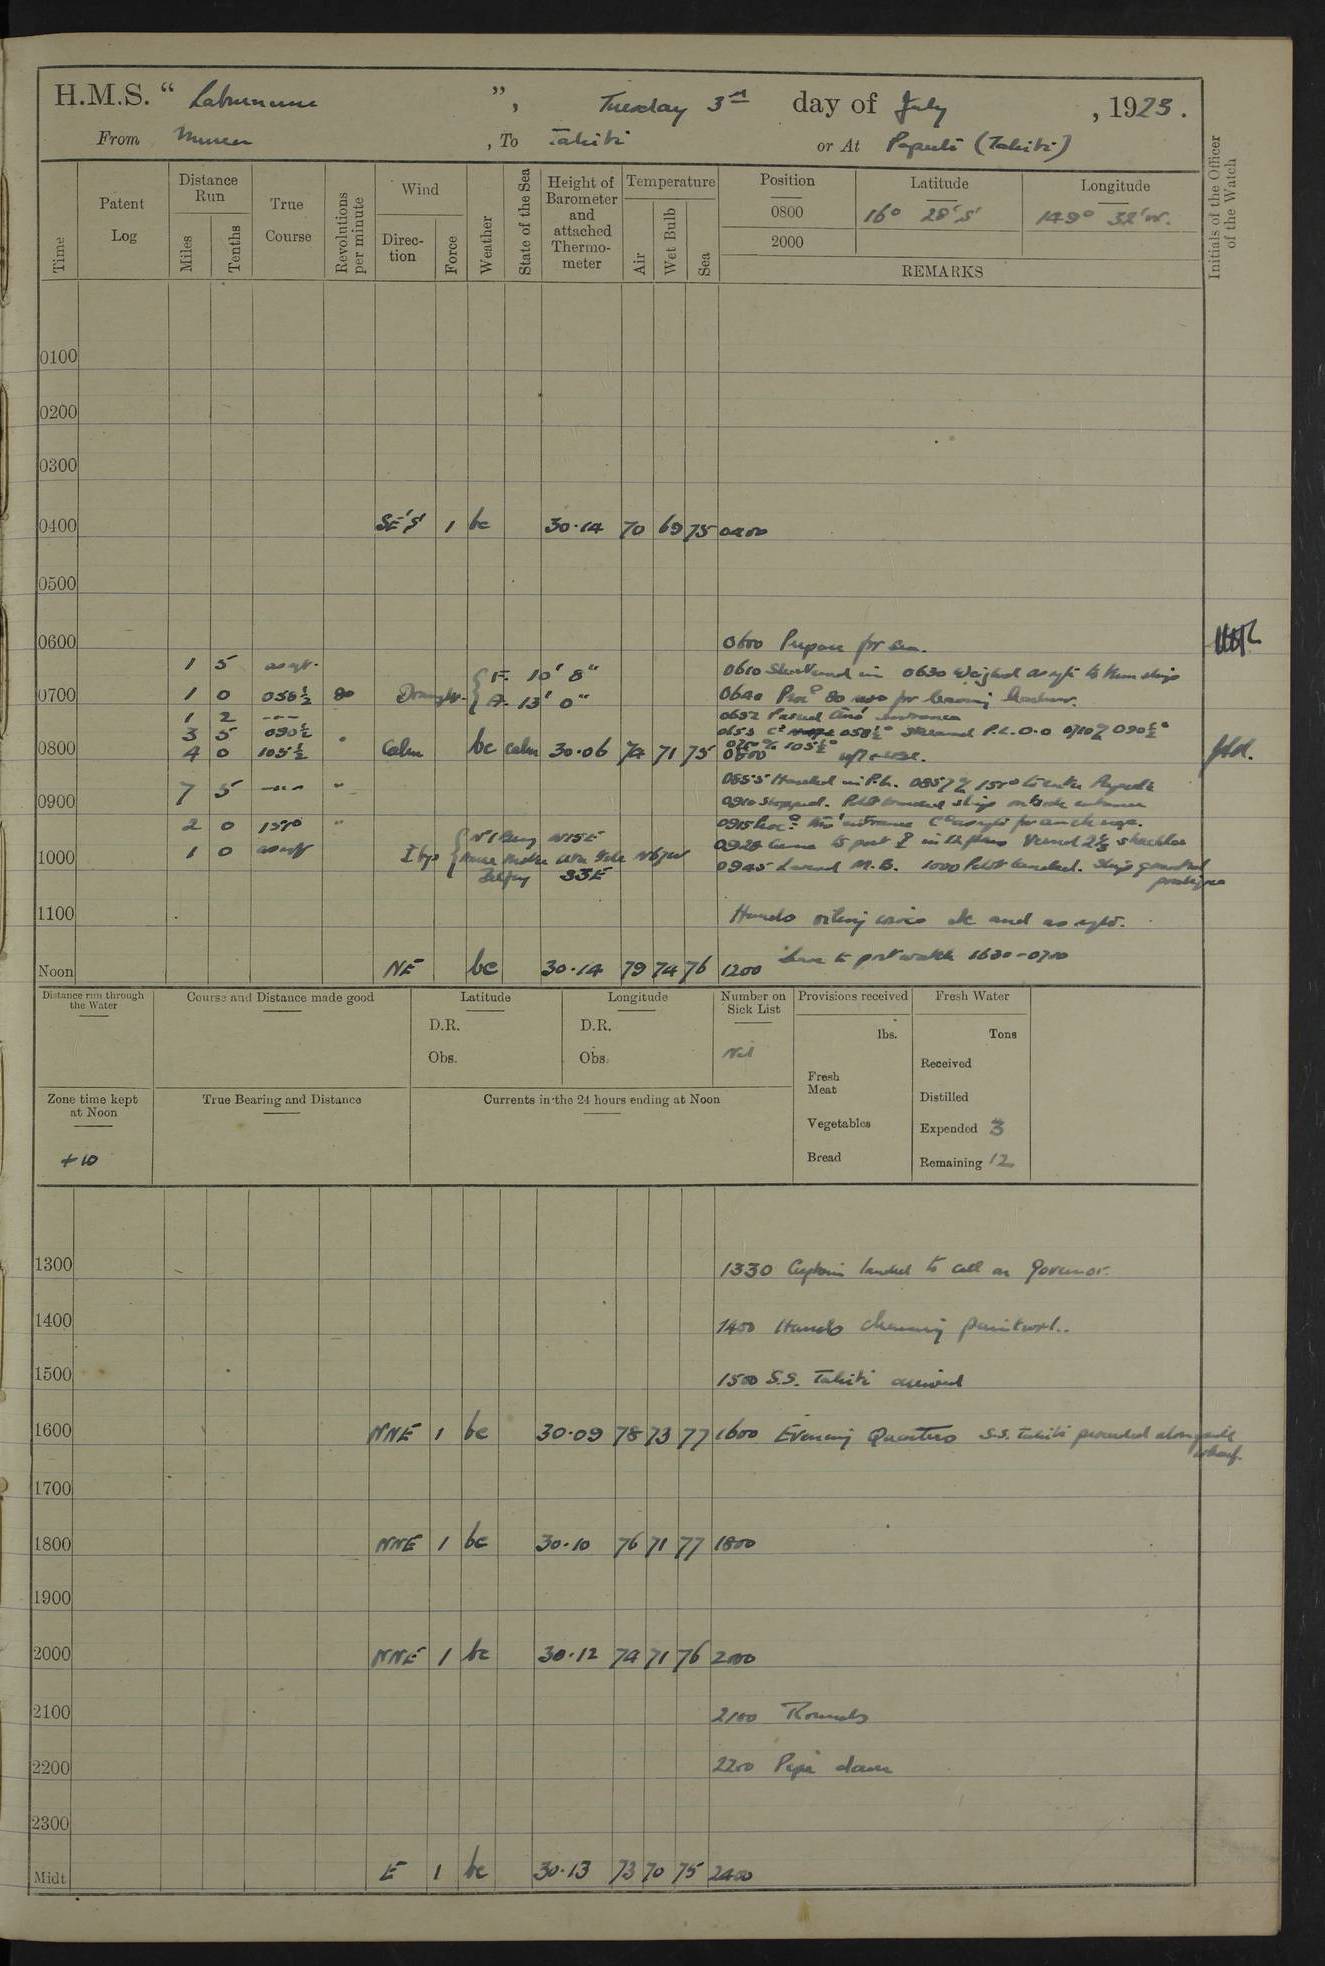 H.M.S. “ Laburnum ”, Tuesday 3rd day of July, 1923.
From , To Tahiti or At Papeete (Tahiti)
Time
Patent Log
Distance Run
Miles
Tenths
True Course
Revolutions per minute
Wind
Direction
Force
Weather
State of the Sea
Height of Barometer and attached Thermometer
Temperature
Air
Wet Bulb
Sea
Position
0800
2000
Latitude
16° 28' S
Longitude
149° 32' W.
REMARKS
Initials of the Officer of the Watch
0100
0200
0300
0400 SE'S' 1 bc 30·14 70 69 75 0400
0500
0600 0600 Prepare for sea.
1 5 as reqt. F. 10' 8" 0610 Shortened in 0630 Weighed as reqte to
0700 1 0 058½ 80 Draught A. 13' 0" 0640 Proc° 80 revs for leaving harbour.
1 2 --- 0652 Passed thro' entrance
3 5 090½ " 0653 C° 058½° Streamed P.L. 0·0 0710 % 090½°
0800 4 0 105½ Calm bc calm 30·06 74 71 75 0800 % 105½°
7 5 --- " 0855 Hauled in P.L. 0857 % 157° to enter Papeete
0900 0910 Stopped. Pilot boarded ship outside entrance
2 0 157° " 0915 Proc° thro' entrance C° as reqte for anchorage.
1000 1 0 as reqt 0928 Came to port in 12 fms Veered 2½ shackles
0945 Lowered M.B. 1000 Pilot landed. Ship granted pratique
1100 Hands and as reqte.
Leave to port watch 1630-0700
Noon NE bc 30·14 79 74 76 1200
Distance run through the Water
Course and Distance made good
Latitude
D.R.
Obs.
Longitude
D.R.
Obs.
Number on Sick List
Nil
Provisions received
lbs.
Fresh Meat
Vegetables
Bread
Fresh Water
Tons
Received
Distilled
Expended 3
Remaining 12
Zone time kept at Noon
+10
True Bearing and Distance
Currents in the 24 hours ending at Noon
1300 1330 Captain landed to call on Governor.
1400 1400 Hands cleaning paintwork.
1500 1500 S.S. Tahiti arrived
1600 NNE 1 bc 30·09 78 73 77 1600 Evening Quarters S.S. Tahiti proceeded alongside wharf.
1700
1800 NNE 1 bc 30·10 76 71 77 1800
1900
2000 NNE 1 bc 30·12 74 71 76 2000
2100 2100 Rounds
2200 2200 Pipe down
2300
Midt. E 1 bc 30·13 73 70 75 2400